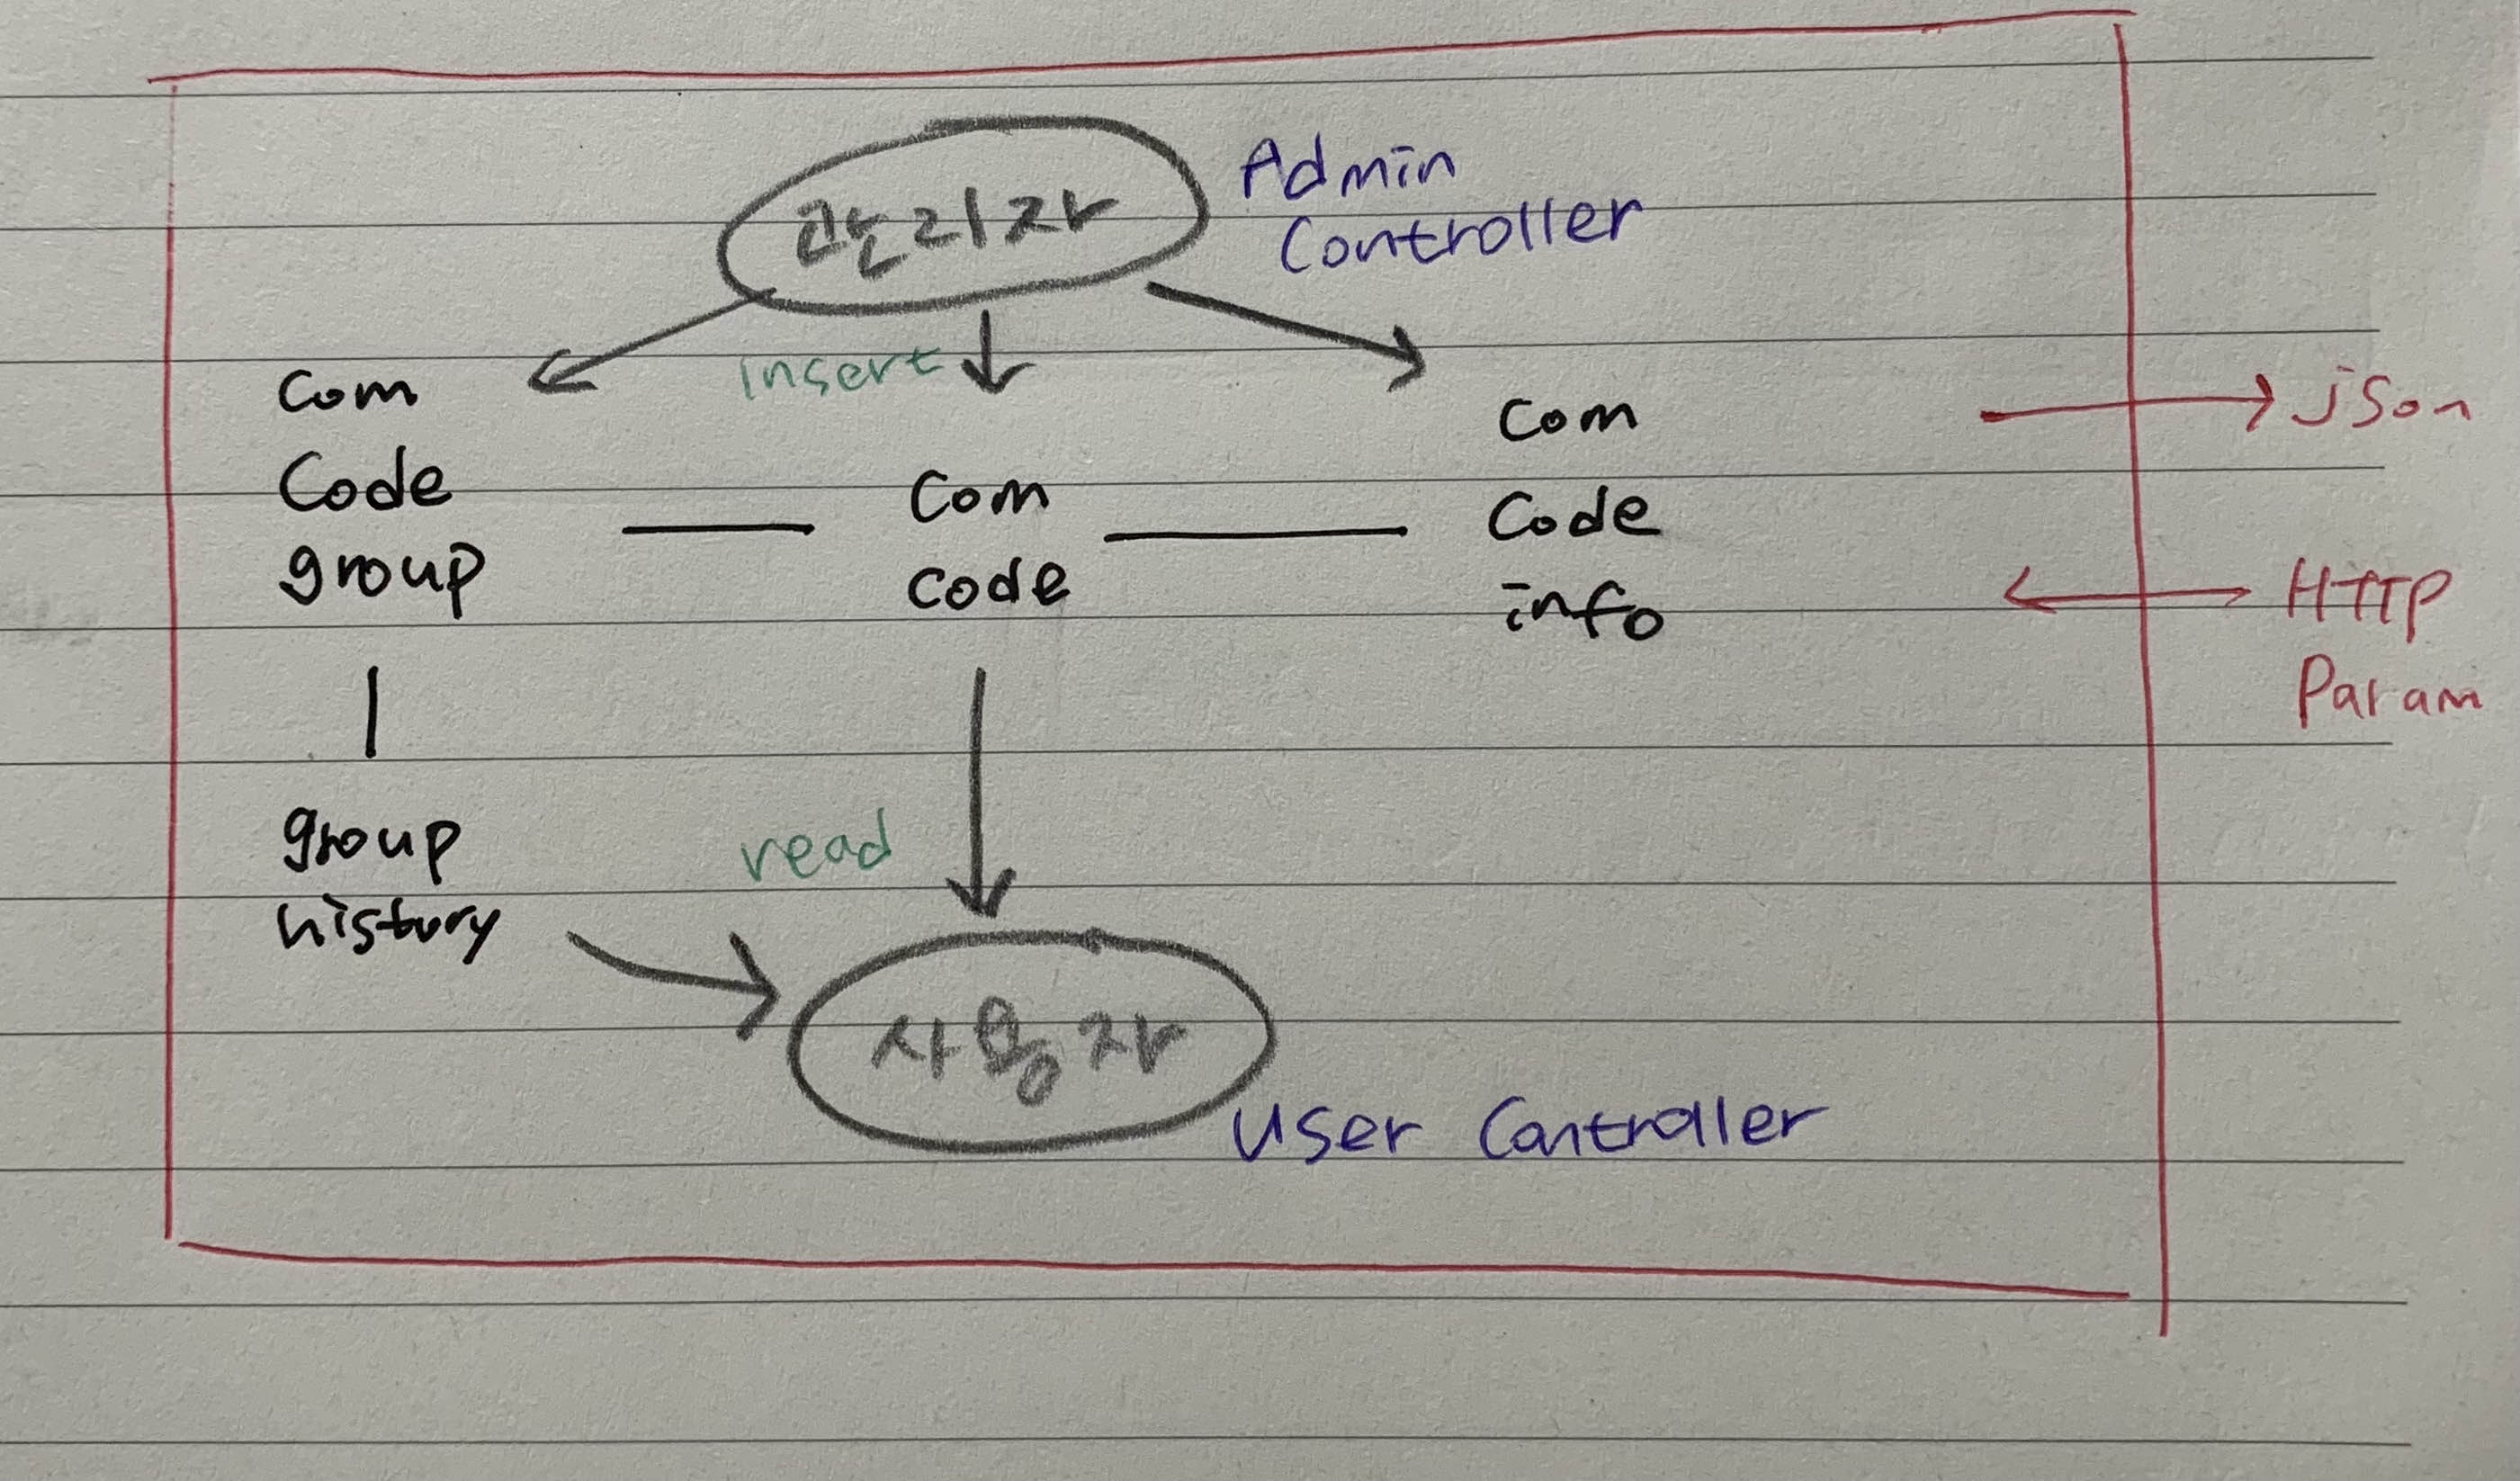 관리자
Admin
Controller
insert
Com
Code
group
Com
code
Com
Code
info
json
HTTP
Param
group
history
read
사용자
User Controller